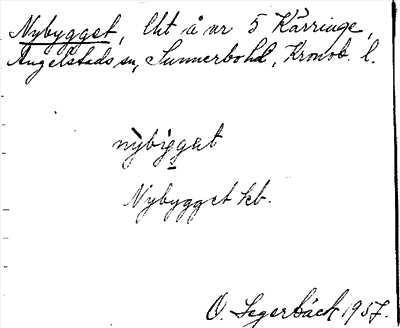 Nybygget, lht å nr 5 Kärringe,
Angelstads sn, Sunnerbo hd, Kronob. l.
nỳbìg̱gət
Nybygget kb.
O. Segerbäck 1957.